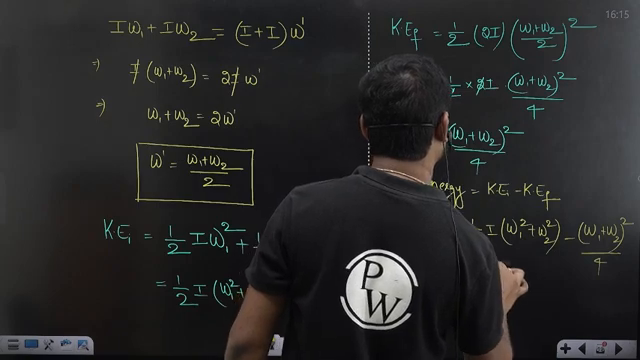 Iω₁ + Iω₂ = (I + I) ω'
⇒ I (ω₁+ω₂) = 2I ω'
⇒ ω₁ + ω₂ = 2ω'
ω' = (ω₁+ω₂)/2
K·Eᵢ = 1/2 Iω₁² +
= 1/2 I (ω₁² +
16:15
K·E_f = 1/2 (2I) ((ω₁+ω₂)/2)²
1/2 × 2I (ω₁+ω₂)²/4
(ω₁+ω₂)²/4
= K·Eᵢ − K·E_f
= I (ω₁² + ω₂²) − (ω₁+ω₂)²/4
PW
4